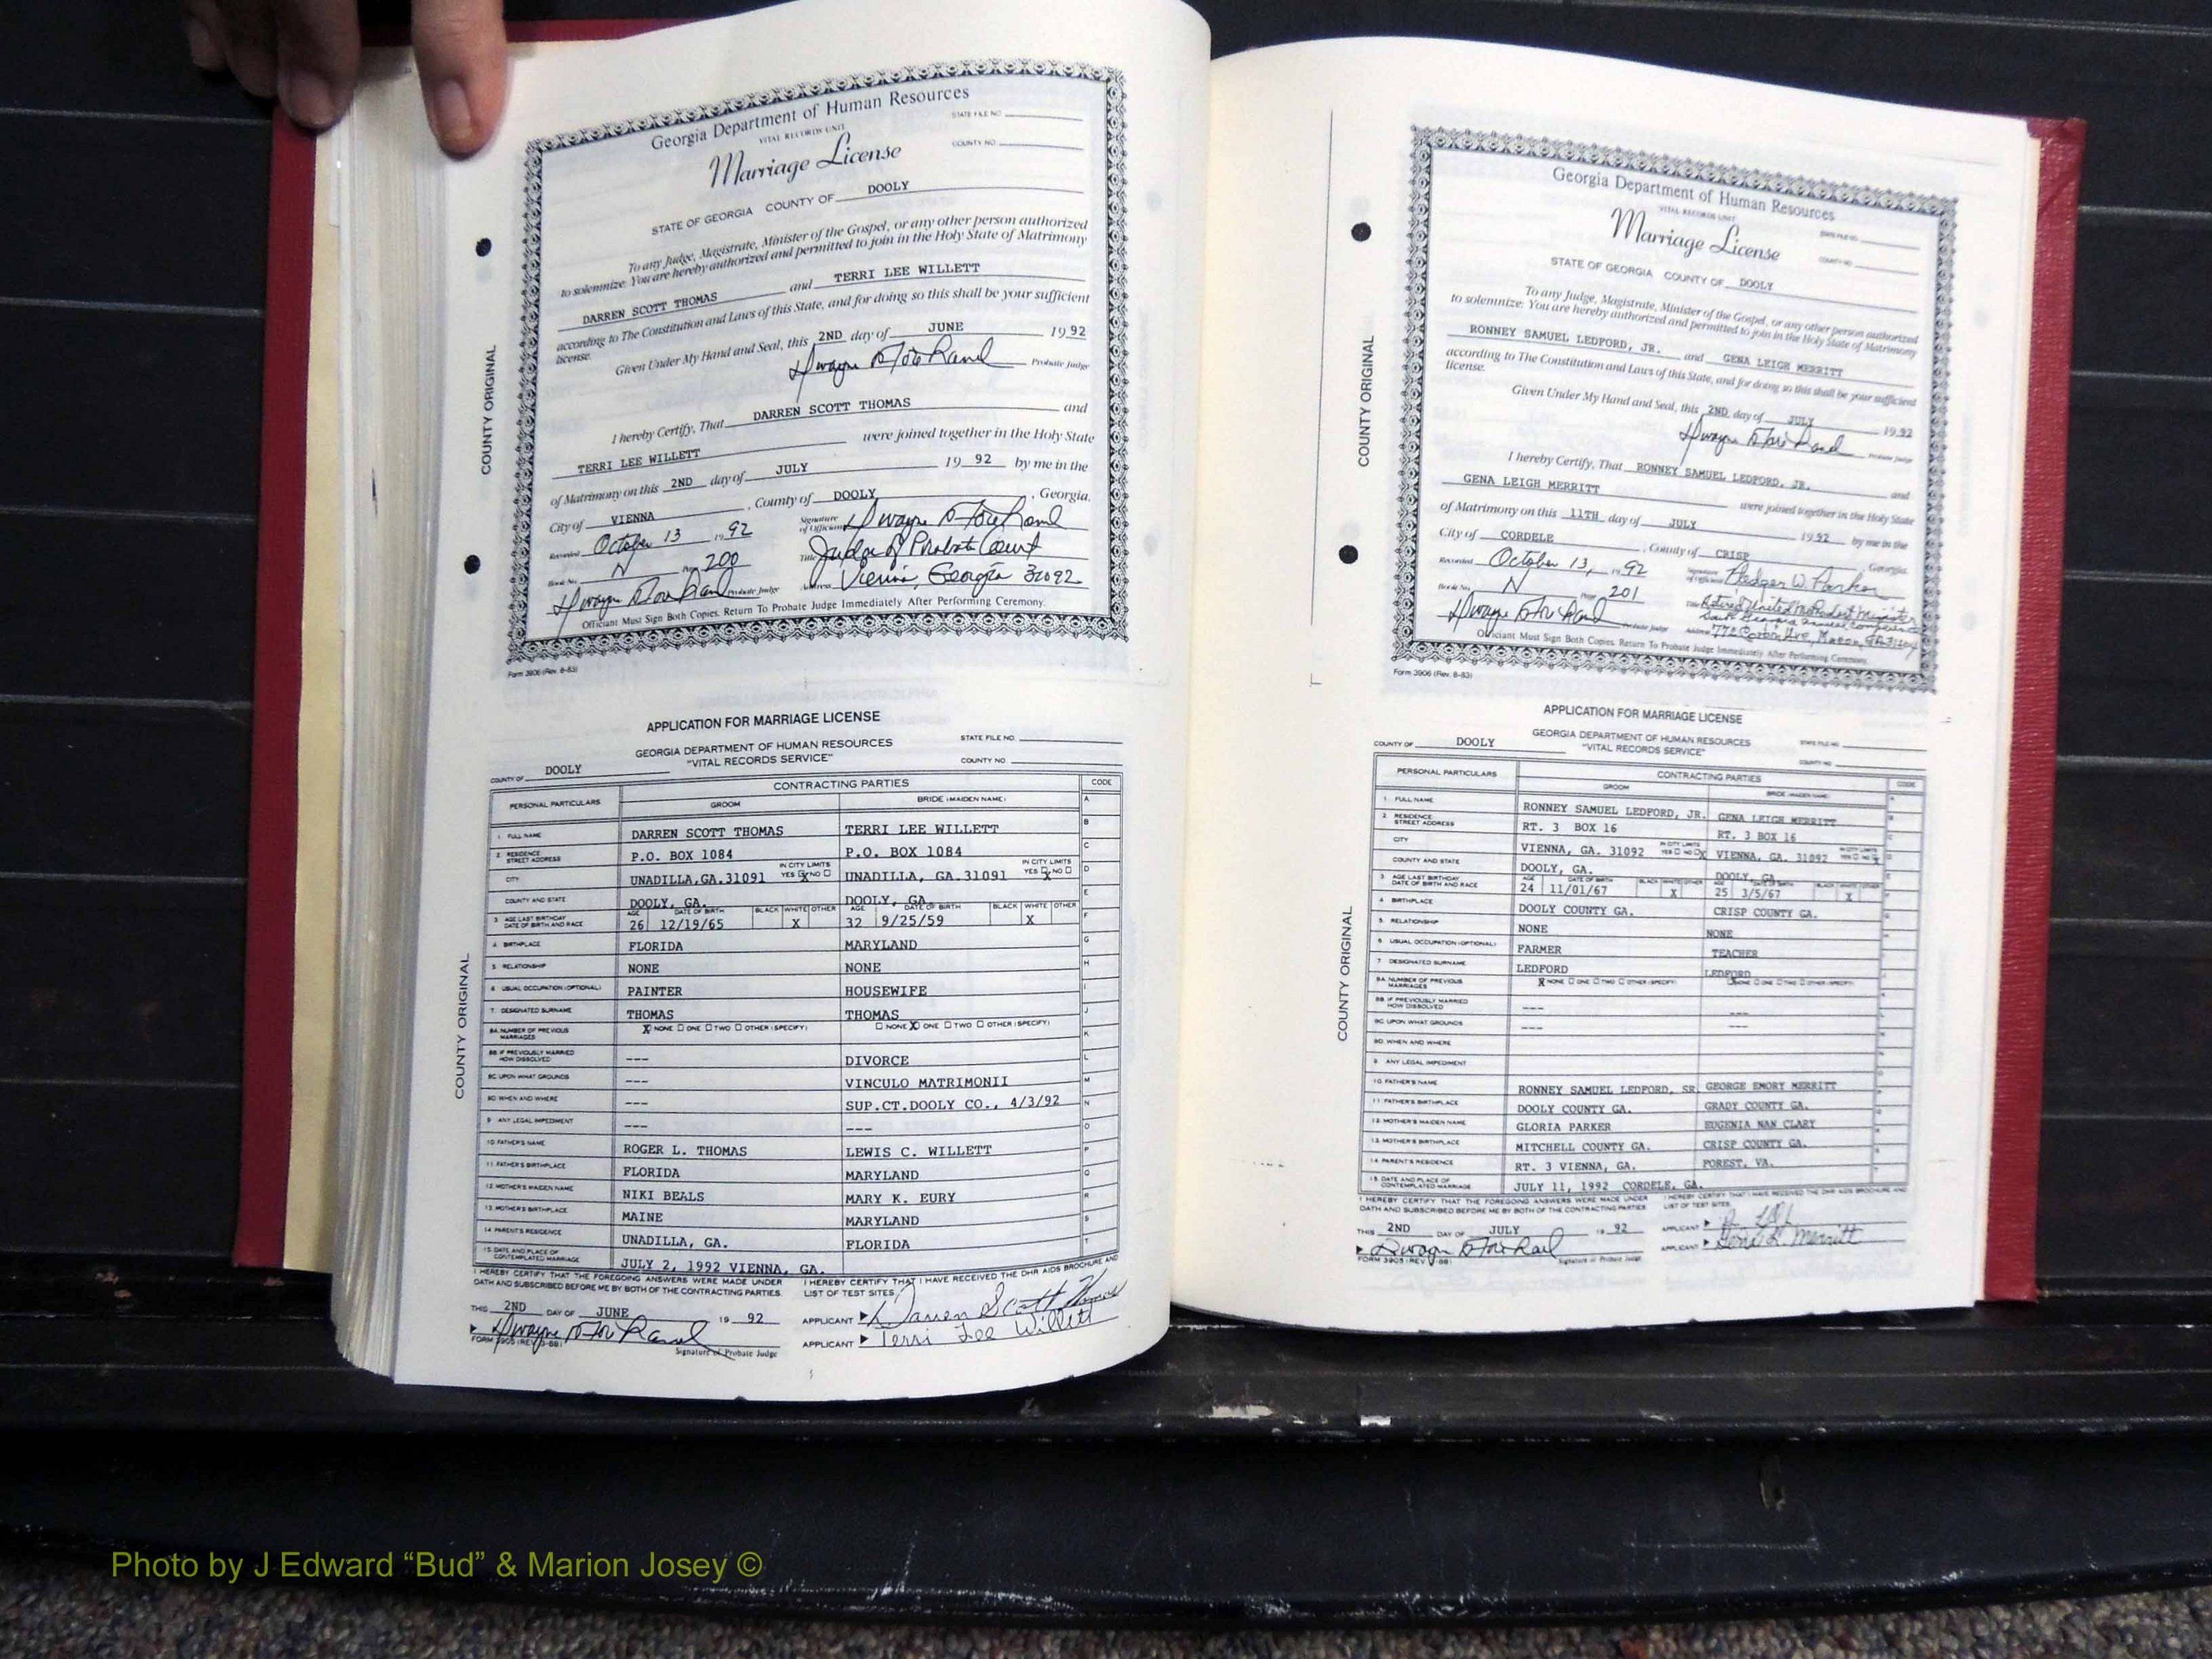 Georgia Department of Human Resources
VITAL RECORDS UNIT
STATE FILE NO.
Marriage License
COUNTY NO.
STATE OF GEORGIA COUNTY OF DOOLY
To any Judge, Magistrate, Minister of the Gospel, or any other person authorized
to solemnize: You are hereby authorized and permitted to join in the Holy State of Matrimony
DARREN SCOTT THOMAS and TERRI LEE WILLETT
according to The Constitution and Laws of this State, and for doing so this shall be your sufficient
license.
Given Under My Hand and Seal, this 2ND day of JUNE 19 92
Probate Judge
I hereby Certify, That DARREN SCOTT THOMAS and
TERRI LEE WILLETT were joined together in the Holy State
of Matrimony on this 2ND day of JULY 19 92 by me in the
City of VIENNA, County of DOOLY, Georgia.
Recorded October 13 19 92 Signature of Official
Book No. N Page 200 Title Judge of Probate Court
Probate Judge Address Vienna, Georgia 31092
Officiant Must Sign Both Copies. Return To Probate Judge Immediately After Performing Ceremony.
Form 3906 (Rev. 8-83)
COUNTY ORIGINAL
APPLICATION FOR MARRIAGE LICENSE
GEORGIA DEPARTMENT OF HUMAN RESOURCES
STATE FILE NO.
"VITAL RECORDS SERVICE"
COUNTY OF DOOLY
COUNTY NO.
PERSONAL PARTICULARS CONTRACTING PARTIES CODE
GROOM BRIDE (MAIDEN NAME)
1. FULL NAME DARREN SCOTT THOMAS TERRI LEE WILLETT
2. RESIDENCE: STREET ADDRESS P.O. BOX 1084 P.O. BOX 1084
CITY UNADILLA,GA.31091 IN CITY LIMITS YES X NO UNADILLA, GA.31091 IN CITY LIMITS YES X NO
COUNTY AND STATE DOOLY, GA. DOOLY, GA.
3. AGE LAST BIRTHDAY DATE OF BIRTH AND RACE AGE 26 DATE OF BIRTH 12/19/65 BLACK WHITE X OTHER AGE 32 DATE OF BIRTH 9/25/59 BLACK WHITE X OTHER
4. BIRTHPLACE FLORIDA MARYLAND
5. RELATIONSHIP NONE NONE
6. USUAL OCCUPATION (OPTIONAL) PAINTER HOUSEWIFE
7. DESIGNATED SURNAME THOMAS THOMAS
8A. NUMBER OF PREVIOUS MARRIAGES X NONE ONE TWO OTHER (SPECIFY) NONE X ONE TWO OTHER (SPECIFY)
8B. IF PREVIOUSLY MARRIED HOW DISSOLVED --- DIVORCE
8C. UPON WHAT GROUNDS --- VINCULO MATRIMONII
8D. WHEN AND WHERE --- SUP.CT.DOOLY CO., 4/3/92
9. ANY LEGAL IMPEDIMENT --- ---
10. FATHER'S NAME ROGER L. THOMAS LEWIS C. WILLETT
11. FATHER'S BIRTHPLACE FLORIDA MARYLAND
12. MOTHER'S MAIDEN NAME NIKI BEALS MARY K. EURY
13. MOTHER'S BIRTHPLACE MAINE MARYLAND
14. PARENT'S RESIDENCE UNADILLA, GA. FLORIDA
15. DATE AND PLACE OF CONTEMPLATED MARRIAGE JULY 2, 1992 VIENNA, GA.
I HEREBY CERTIFY THAT THE FOREGOING ANSWERS WERE MADE UNDER
OATH AND SUBSCRIBED BEFORE ME BY BOTH OF THE CONTRACTING PARTIES.
I HEREBY CERTIFY THAT I HAVE RECEIVED THE DHR AIDS BROCHURE AND
LIST OF TEST SITES.
THIS 2ND DAY OF JUNE 19 92
APPLICANT Darren Scott Thomas
APPLICANT Terri Lee Willett
Signature of Probate Judge
FORM 3905 (REV. 3-88)
COUNTY ORIGINAL
Georgia Department of Human Resources
VITAL RECORDS UNIT
STATE FILE NO.
Marriage License
COUNTY NO.
STATE OF GEORGIA COUNTY OF DOOLY
To any Judge, Magistrate, Minister of the Gospel, or any other person authorized
to solemnize: You are hereby authorized and permitted to join in the Holy State of Matrimony
RONNEY SAMUEL LEDFORD, JR. and GENA LEIGH MERRITT
according to The Constitution and Laws of this State, and for doing so this shall be your sufficient
license.
Given Under My Hand and Seal, this 2ND day of JULY 19 92
Probate Judge
I hereby Certify, That RONNEY SAMUEL LEDFORD, JR. and
GENA LEIGH MERRITT were joined together in the Holy State
of Matrimony on this 11TH day of JULY 19 92 by me in the
City of CORDELE, County of CRISP, Georgia.
Recorded October 13, 19 92 Signature of Official Pledger W. Parker
Book No. N Page 201 Title Retired United Methodist Minister
South Georgia Annual Conference
Probate Judge Address Macon, GA
Officiant Must Sign Both Copies. Return To Probate Judge Immediately After Performing Ceremony.
Form 3906 (Rev. 8-83)
COUNTY ORIGINAL
APPLICATION FOR MARRIAGE LICENSE
GEORGIA DEPARTMENT OF HUMAN RESOURCES
STATE FILE NO.
"VITAL RECORDS SERVICE"
COUNTY OF DOOLY
COUNTY NO.
PERSONAL PARTICULARS CONTRACTING PARTIES CODE
GROOM BRIDE (MAIDEN NAME)
1. FULL NAME RONNEY SAMUEL LEDFORD, JR. GENA LEIGH MERRITT
2. RESIDENCE: STREET ADDRESS RT. 3 BOX 16 RT. 3 BOX 16
CITY VIENNA, GA. 31092 IN CITY LIMITS YES NO X VIENNA, GA. 31092 IN CITY LIMITS YES NO X
COUNTY AND STATE DOOLY, GA. DOOLY, GA.
3. AGE LAST BIRTHDAY DATE OF BIRTH AND RACE AGE 24 DATE OF BIRTH 11/01/67 BLACK WHITE X OTHER AGE 25 DATE OF BIRTH 3/5/67 BLACK WHITE X OTHER
4. BIRTHPLACE DOOLY COUNTY GA. CRISP COUNTY GA.
5. RELATIONSHIP NONE NONE
6. USUAL OCCUPATION (OPTIONAL) FARMER TEACHER
7. DESIGNATED SURNAME LEDFORD LEDFORD
8A. NUMBER OF PREVIOUS MARRIAGES X NONE ONE TWO OTHER (SPECIFY) X NONE ONE TWO OTHER (SPECIFY)
8B. IF PREVIOUSLY MARRIED HOW DISSOLVED --- ---
8C. UPON WHAT GROUNDS --- ---
8D. WHEN AND WHERE
9. ANY LEGAL IMPEDIMENT
10. FATHER'S NAME RONNEY SAMUEL LEDFORD, SR. GEORGE EMORY MERRITT
11. FATHER'S BIRTHPLACE DOOLY COUNTY GA. GRADY COUNTY GA.
12. MOTHER'S MAIDEN NAME GLORIA PARKER EUGENIA NAN CLARY
13. MOTHER'S BIRTHPLACE MITCHELL COUNTY GA. CRISP COUNTY GA.
14. PARENT'S RESIDENCE RT. 3 VIENNA, GA. FOREST, VA.
15. DATE AND PLACE OF CONTEMPLATED MARRIAGE JULY 11, 1992 CORDELE, GA.
I HEREBY CERTIFY THAT THE FOREGOING ANSWERS WERE MADE UNDER
OATH AND SUBSCRIBED BEFORE ME BY BOTH OF THE CONTRACTING PARTIES
I HEREBY CERTIFY THAT I HAVE RECEIVED THE DHR AIDS BROCHURE AND
LIST OF TEST SITES.
THIS 2ND DAY OF JULY 19 92
APPLICANT
APPLICANT Gena L. Merritt
Signature of Probate Judge
COUNTY ORIGINAL
Photo by J Edward “Bud” & Marion Josey ©